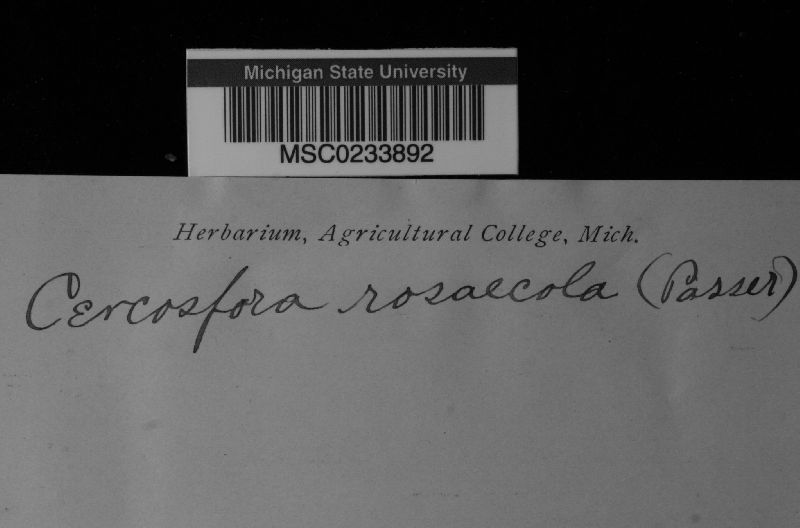 Michigan State University
MSC0233892
Herbarium, Agricultural College, Mich.
Cercospora rosaecola (Passer)